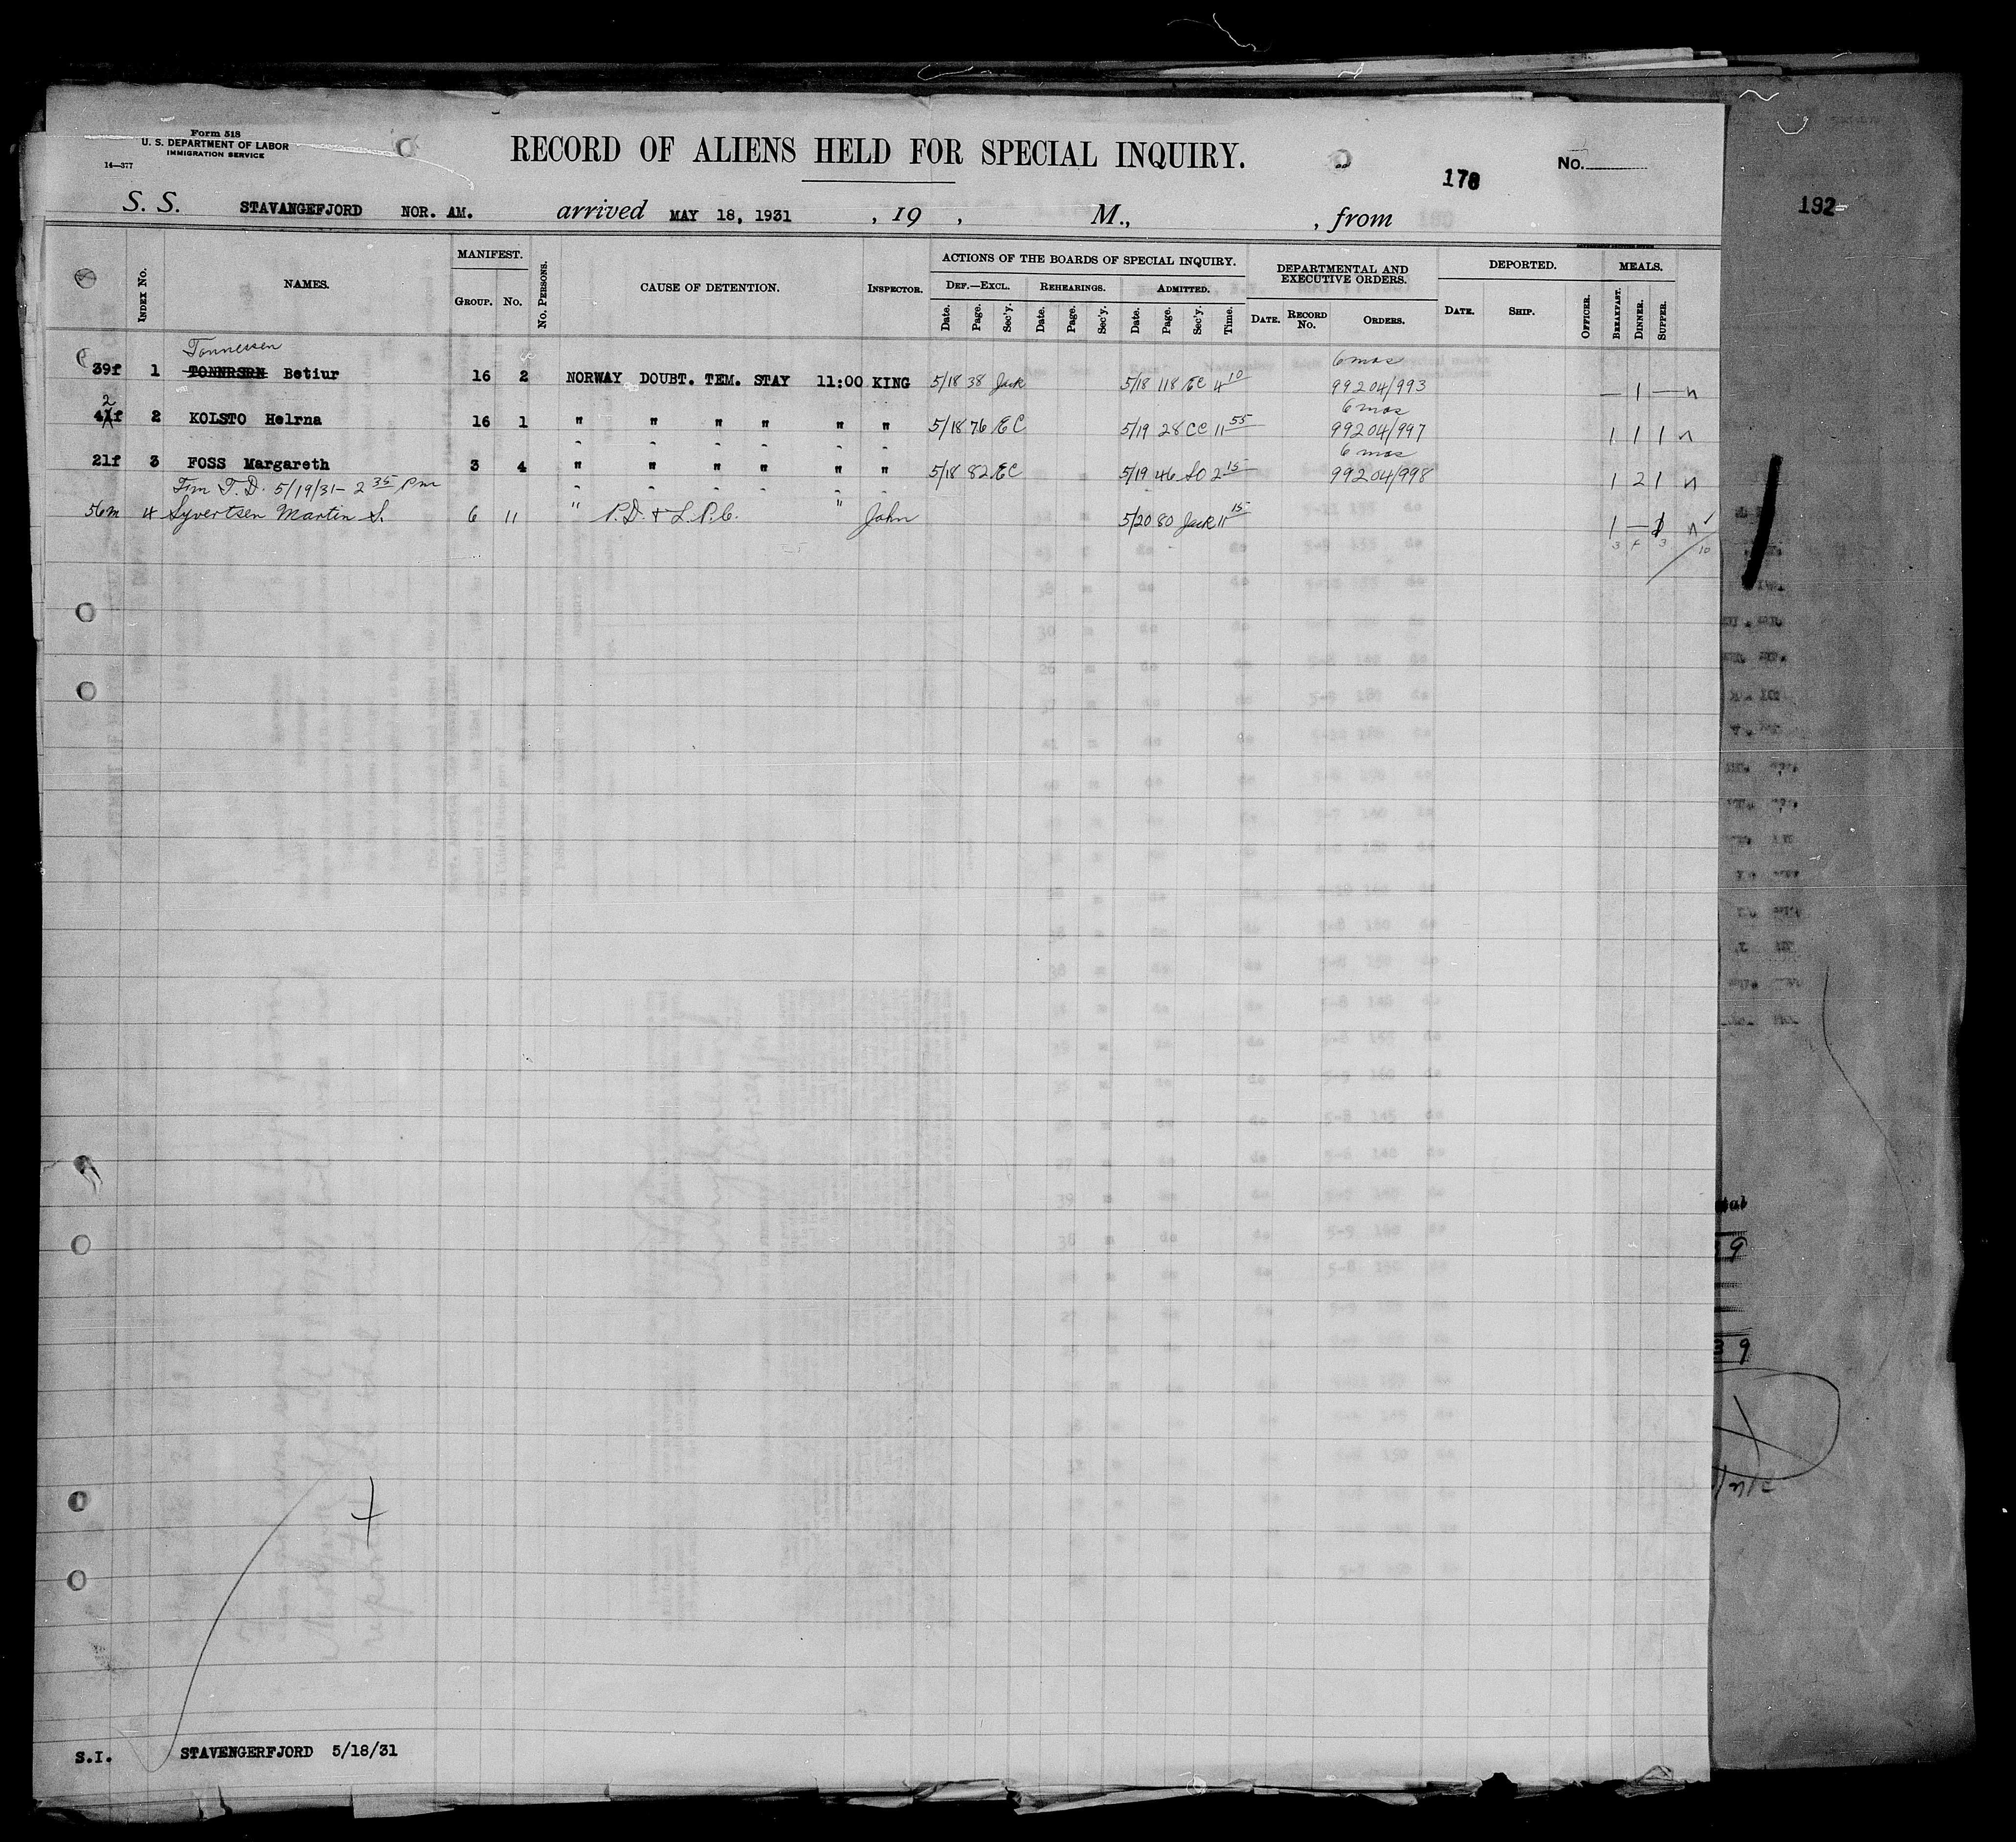 Form 518
U. S. DEPARTMENT OF LABOR
IMMIGRATION SERVICE
14—377
RECORD OF ALIENS HELD FOR SPECIAL INQUIRY.
No.
178
192
S. S. STAVANGEFJORD NOR. AM. arrived MAY 18, 1931 , 19 , M., , from
INDEX No. NAMES. MANIFEST. GROUP. No. No. PERSONS. CAUSE OF DETENTION. INSPECTOR. ACTIONS OF THE BOARDS OF SPECIAL INQUIRY. DEPARTMENTAL AND EXECUTIVE ORDERS. DEPORTED. MEALS.
DEF.—EXCL. REHEARINGS. ADMITTED.
Date. Page. Sec'y. Date. Page. Sec'y. Date. Page. Sec'y. Time. DATE. RECORD No. ORDERS. DATE. SHIP. OFFICER. BREAKFAST. DINNER. SUPPER.
Tonnessen 6 mos
39f 1 TONNRSRN Betiur 16 2 NORWAY DOUBT. TEM. STAY 11:00 KING 5/18 38 Jack 5/18 118 EC 4 10 99204/993 — 1 — n
2 6 mos
41f 2 KOLSTO Helrna 16 1 " " " " " " 5/18 76 EC 5/19 28 CC 11 55 99204/997 1 1 1 n
6 mos
21f 3 FOSS Margareth 3 4 " " " " " " 5/18 82 EC 5/19 46 SO 2 15 99204/998 1 2 1 n
Fm T.D. 5/19/31 - 2 35 pm
56m 4 Syvertsen Martin S. 6 11 " P.D. & L.P.C. " John 5/20 80 Jack 11 15 1 — 1 n
3 4 3 10
S.I. STAVENGERFJORD 5/18/31